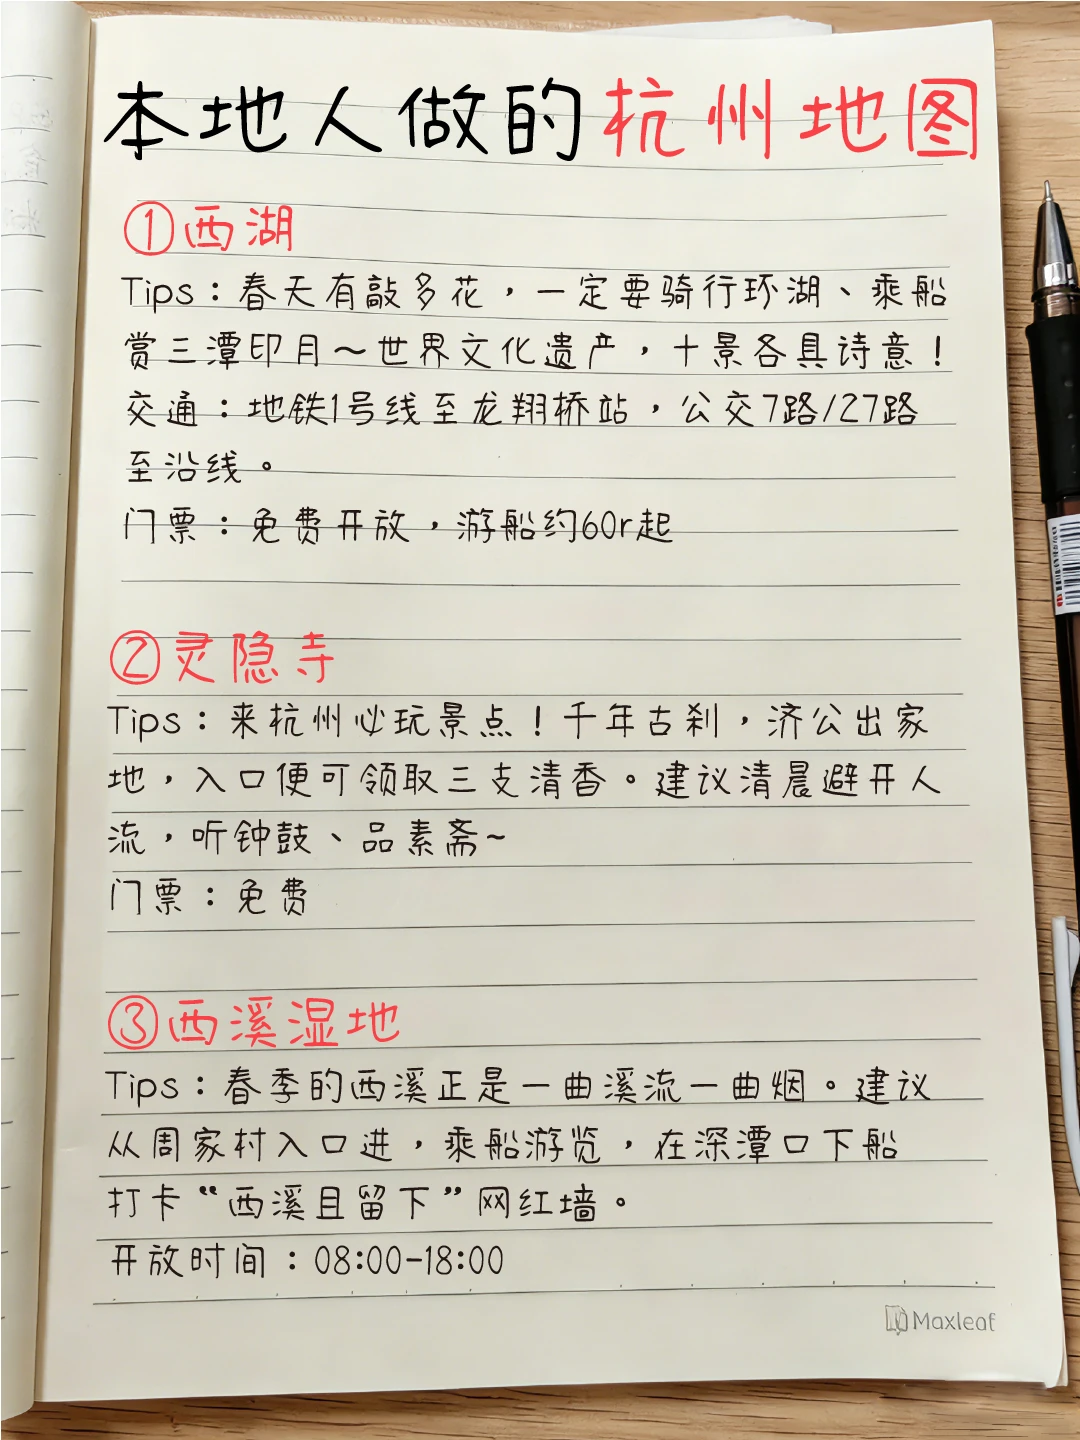 本地人做的杭州地图
①西湖
Tips：春天有敲多花，一定要骑行环湖、乘船
赏三潭印月～世界文化遗产，十景各具诗意！
交通：地铁1号线至龙翔桥站，公交7路/27路
至沿线。
门票：免费开放，游船约60r起
②灵隐寺
Tips：来杭州必玩景点！千年古刹，济公出家
地，入口便可领取三支清香。建议清晨避开人
流，听钟鼓、品素斋~
门票：免费
③西溪湿地
Tips：春季的西溪正是一曲溪流一曲烟。建议
从周家村入口进，乘船游览，在深潭口下船
打卡“西溪且留下”网红墙。
开放时间：08:00-18:00
Maxleaf